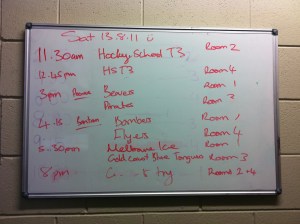 Sat 13.8.11
11.30am Hockey School T3 Room 2
12.45pm HST3 Room 4
3pm Peewee Braves Room 1
Pirates Room 3
4.15 Bantam Bombers Room 1
Flyers Room 4
5.30pm Melbourne Ice Room 1
Gold Coast Blue Tongues Room 3
8pm Rooms 2+4